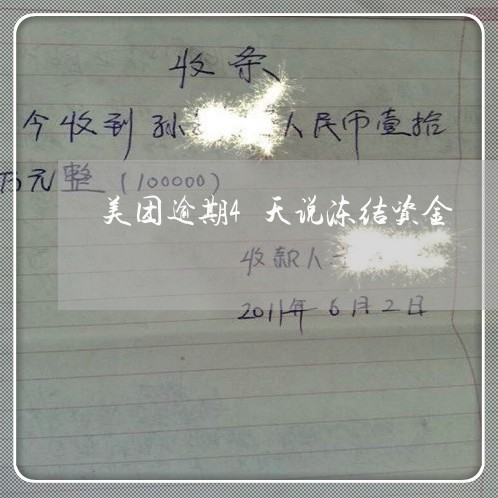 收条
今收到孙 人民币壹拾
万元整(100000)
美团逾期4 天说冻结资金
收款人
2011年6月2日